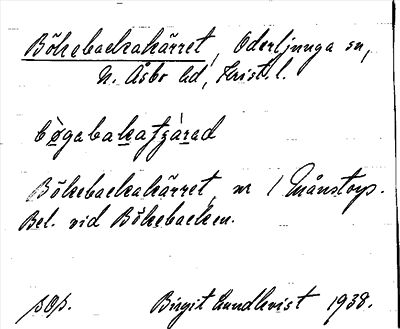 Bökebackakärret, Oderljunga sn,
N. Åsbo hd, Krist. l.
bögabakatzarad
Bökebackakärret, nr 1 Månstorp.
Bel. vid Bökebacken.
sop.
Birgit Lundkvist 1938.